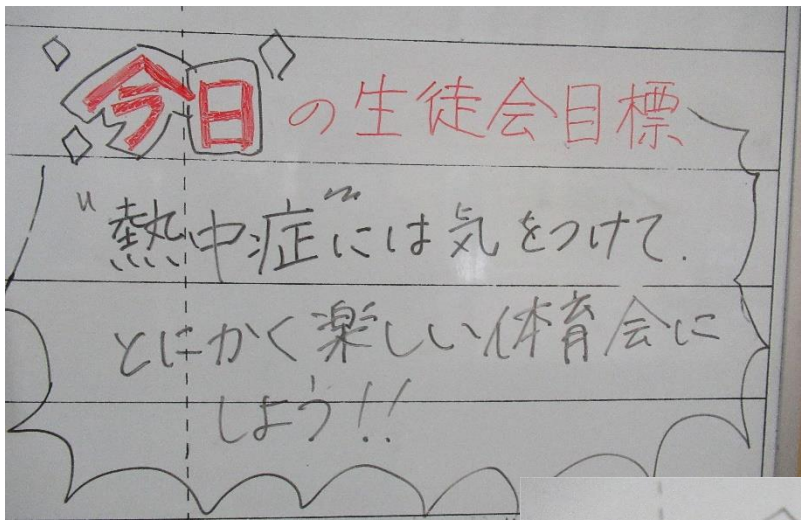 今日の生徒会目標
"熱中症"には気をつけて.
とにかく楽しい体育会に
しよう!!